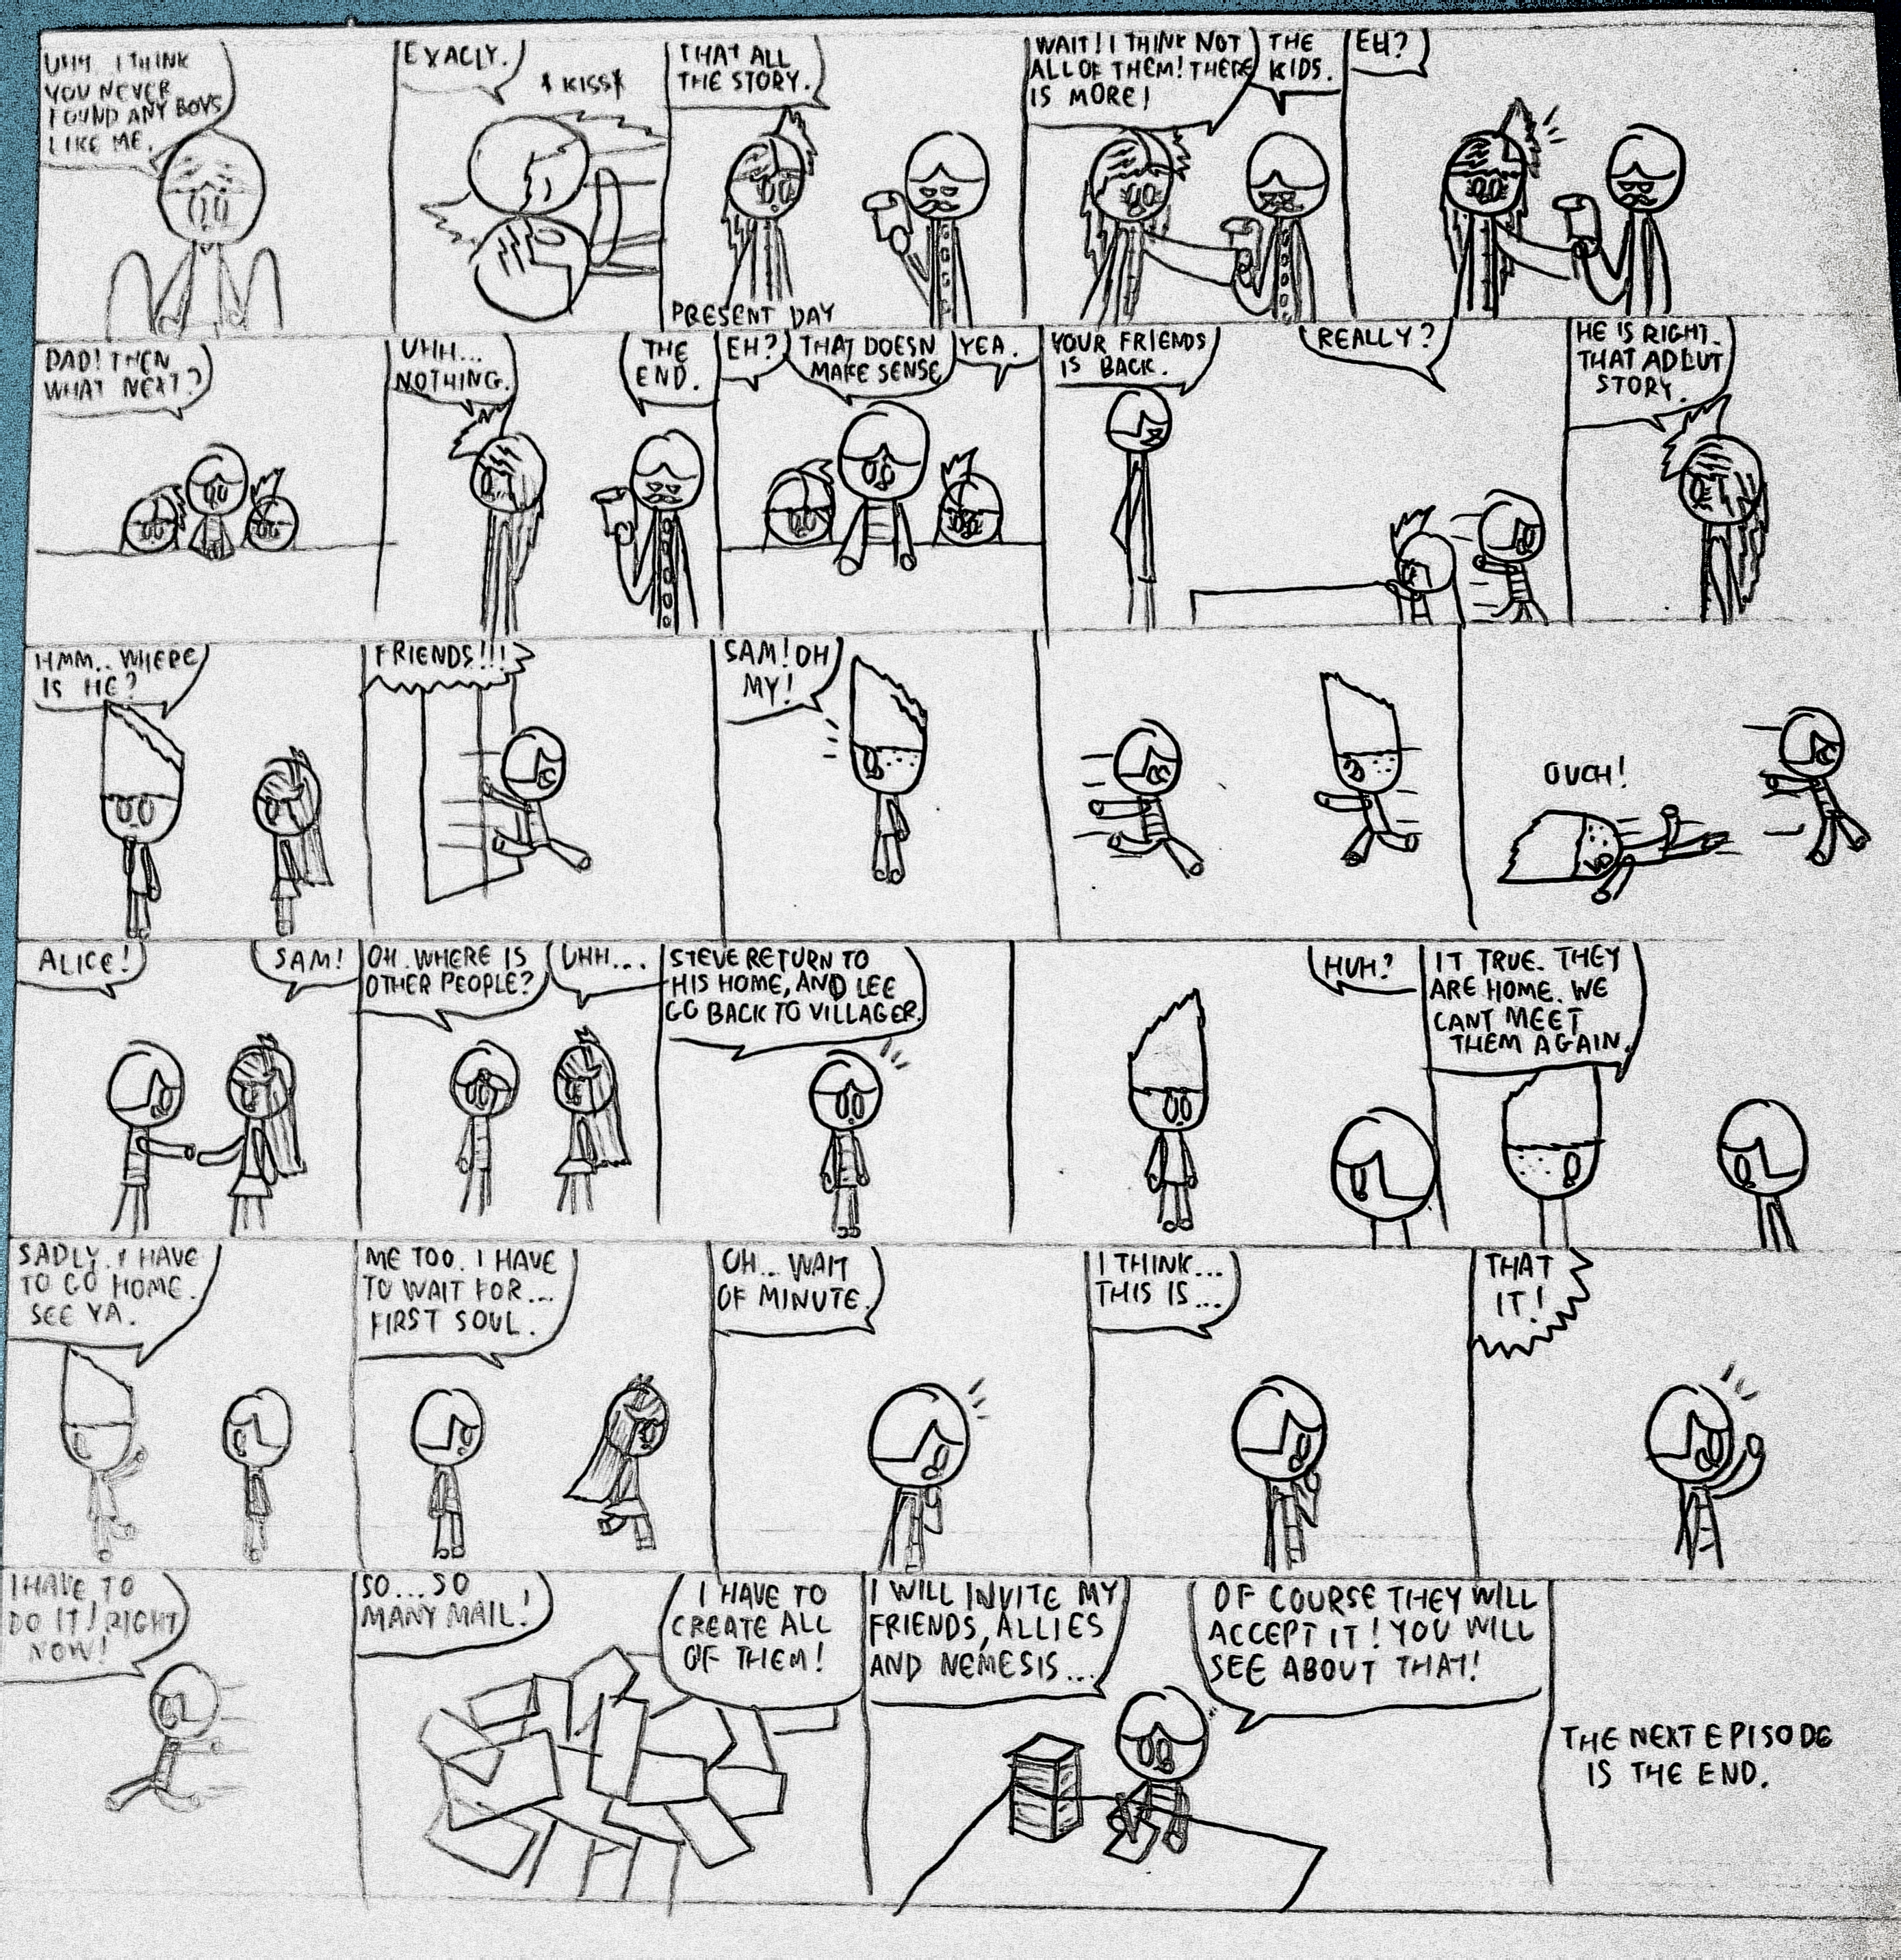 UHH.. I THINK
YOU NEVER
FOUND ANY BOYS
LIKE ME.
EXACLY.
*KISS*
THAT ALL
THE STORY.
PRESENT DAY
WAIT! I THINK NOT
ALL OF THEM! THERE
IS MORE!
THE
KIDS.
EH?
DAD! THEN
WHAT NEXT?
UHH...
NOTHING.
THE
END.
EH?
THAT DOESN
MAKE SENSE
YEA.
YOUR FRIENDS
IS BACK.
REALLY?
HE IS RIGHT.
THAT ADLUT
STORY.
HMM.. WHERE
IS HE?
FRIENDS!!!
SAM! OH
MY!
OUCH!
ALICE!
SAM!
OH. WHERE IS
OTHER PEOPLE?
UHH...
STEVE RETURN TO
HIS HOME, AND LEE
GO BACK TO VILLAGER.
HUH?
IT TRUE. THEY
ARE HOME. WE
CANT MEET
THEM AGAIN.
SADLY. I HAVE
TO GO HOME.
SEE YA.
ME TOO. I HAVE
TO WAIT FOR...
FIRST SOUL.
OH... WAIT
OF MINUTE.
I THINK...
THIS IS...
THAT
IT!
I HAVE TO
DO IT! RIGHT
NOW!
SO... SO
MANY MAIL!
I HAVE TO
CREATE ALL
OF THEM!
I WILL INVITE MY
FRIENDS, ALLIES
AND NEMESIS...
OF COURSE THEY WILL
ACCEPT IT! YOU WILL
SEE ABOUT THAT!
THE NEXT EPISODE
IS THE END.